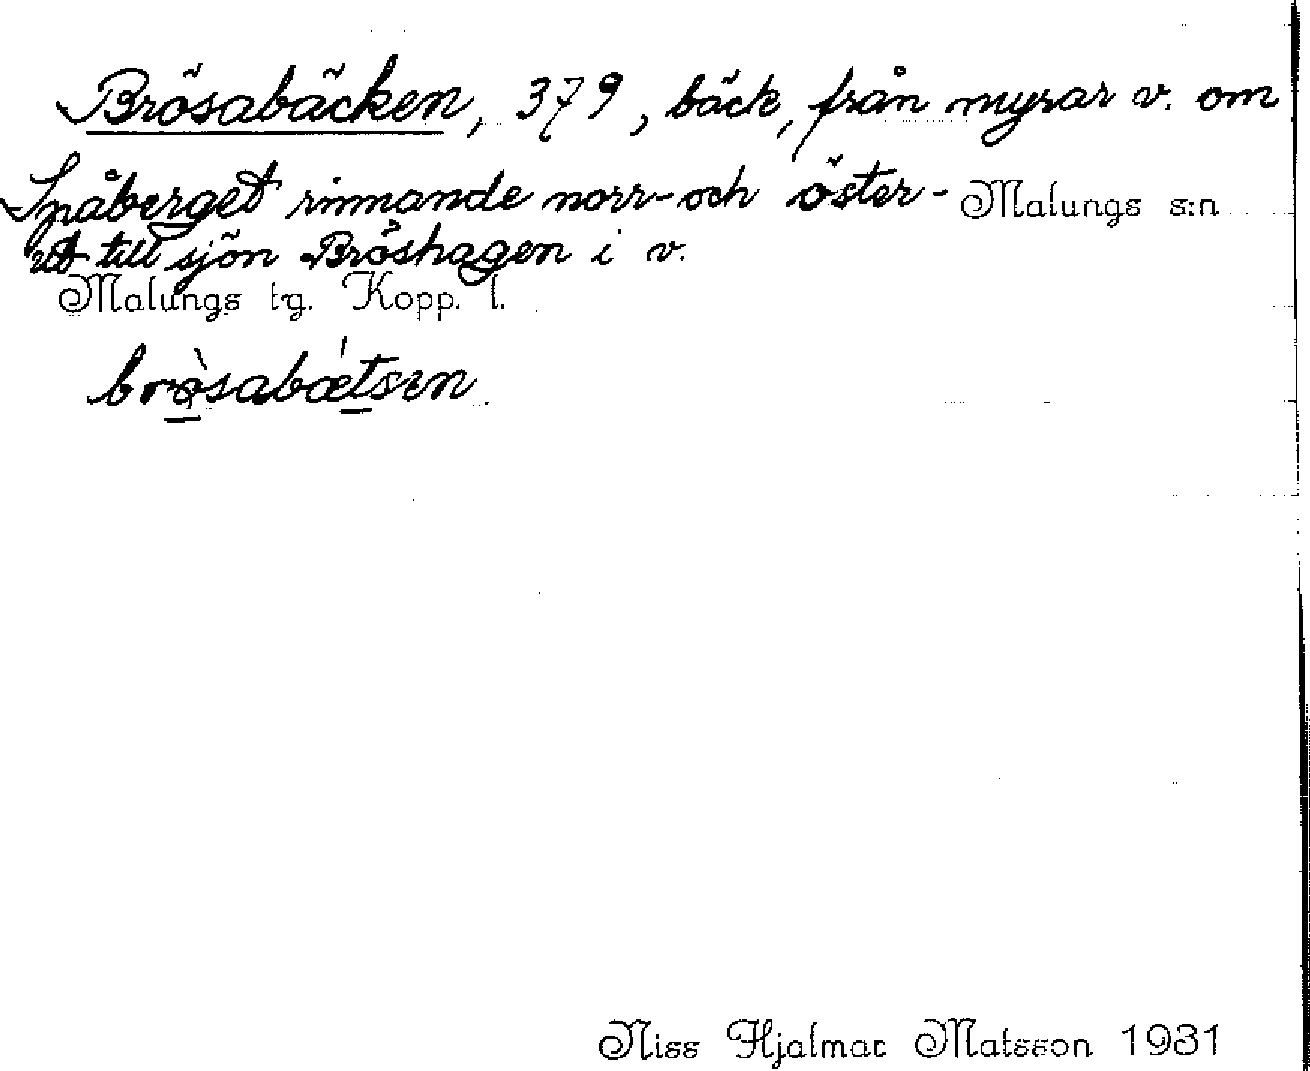 Brösabäcken, 379, bäck, från myrar v. om
Spåberget rinnande norr- och öster- Malungs s:n
ut till sjön Bröshagen i v.
Malungs tg. Kopp. l.
brò̱sabǽ̱tsen
Niss Hjalmar Matsson 1931